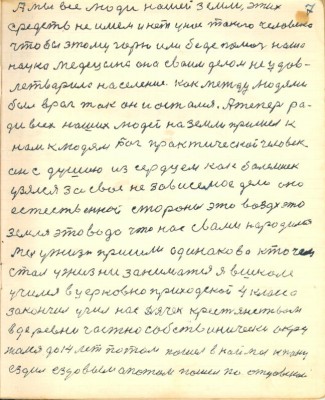 7
А мы все люди нашей земли, этих
средств не имеем и нет у нас такого человека
чтобы этому горю или беде помог наша
наука медецина она своим делом не удов-
летварила население. как между людями
был враг так он и остался. А теперь ра-
ди всех наших людей на земли пришел к
нам к людям Бог практической человек
он с душою из сердцем как болеющих
взялся за свое не зависемое дело оно
естественной стороны это воздух это
земля это вода что нас с вами народила
мы у жизнь пришли одинаково кто чем
стал у жизни заниматся я в школе
учился в церковно приходской 4 класа
закончил учил нас дячек крестянством
в деревни частно собственически окру
жался до 14 лет потом пошел в найми к пану
ездил ездовым а потом пошел по отцовской